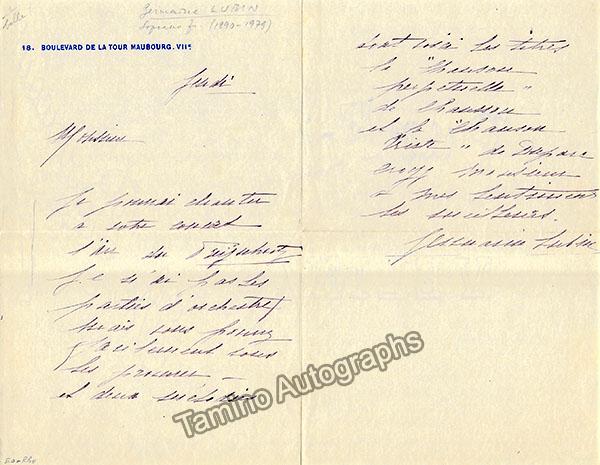 Germaine LUBIN
Soprano fr. (1890-1979)
18. BOULEVARD DE LA TOUR MAUBOURG. VIIe
Jeudi
Monsieur
Je pourrai chanter
à votre concert
l'air du Freischutz
Je n'ai pas les
parties d'orchestre
mais vous pourrez
facilement vous
les procurer –
et deux mélodies
dont voici les titres
la "Chanson
perpétuelle"
de Chausson
et la "Chanson
triste" de Duparc
croyez Monsieur
à mes sentiments
les meilleurs.
Germaine Lubin
Tamino Autographs